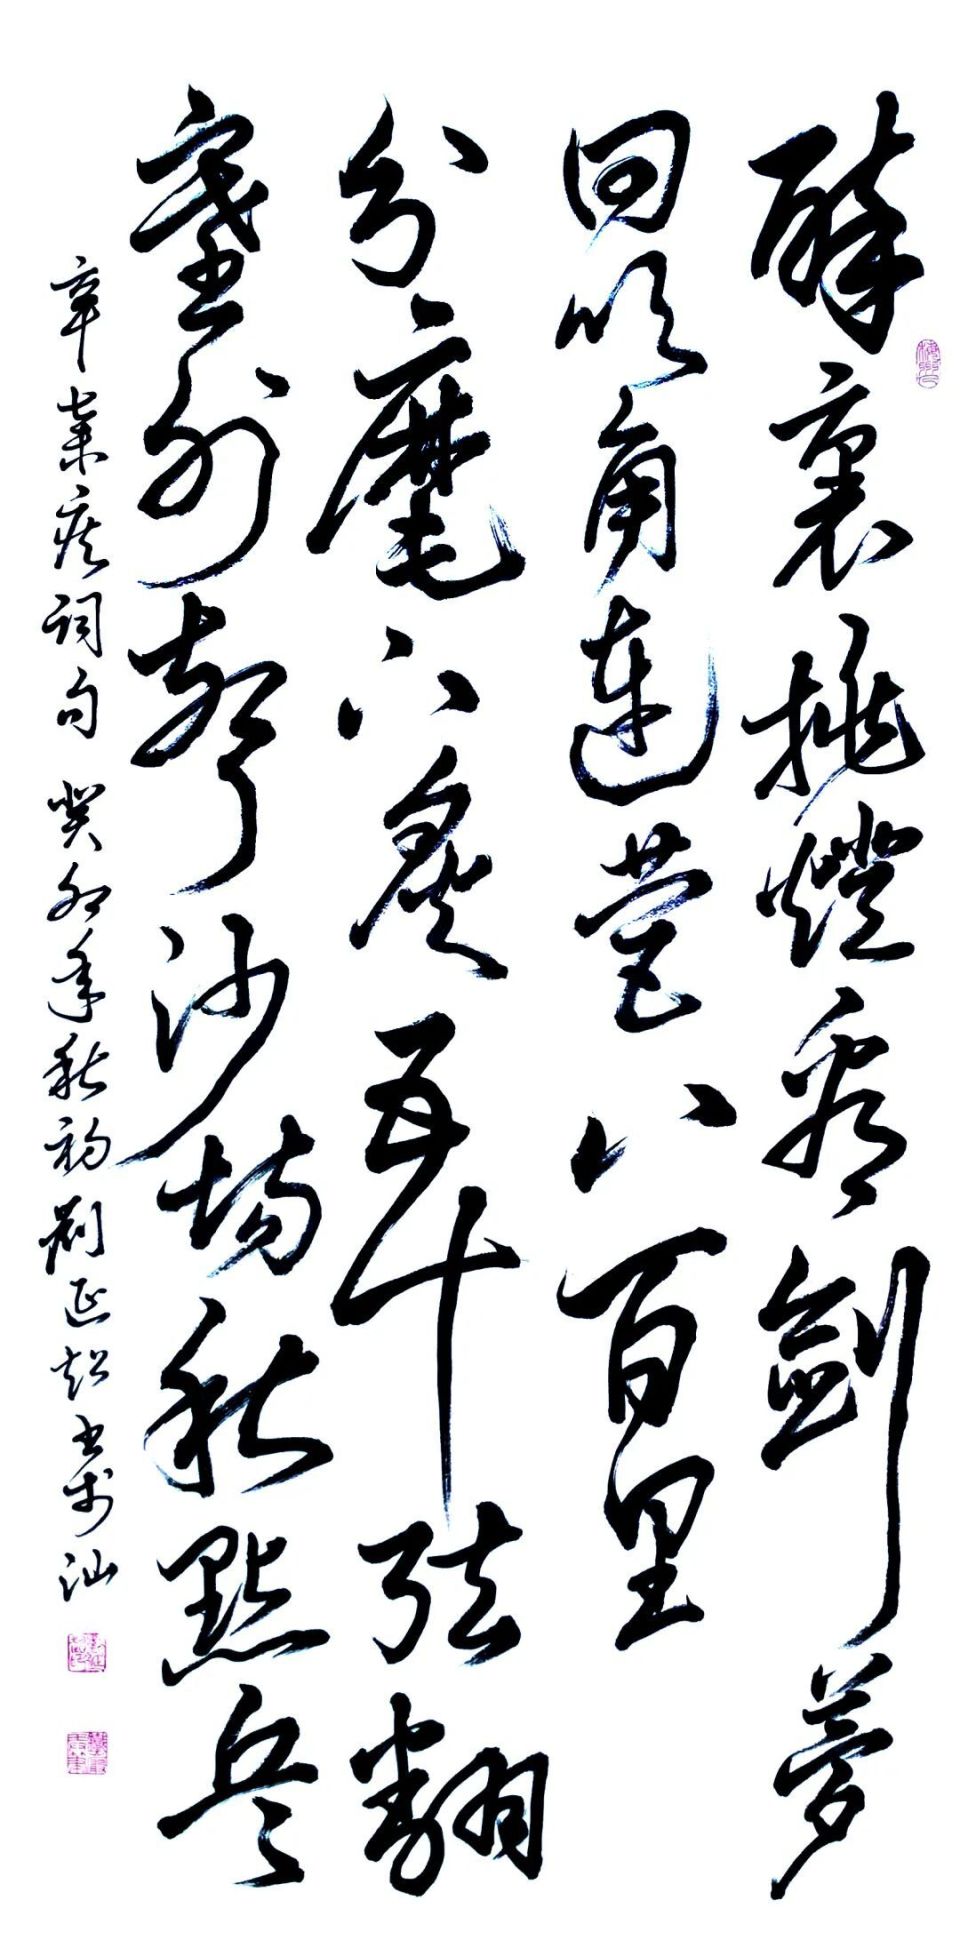 醉裏挑燈看劍夢
回吹角連營八百里
分麾下炙五十弦翻
塞外聲沙場秋點兵
辛棄疾詞句 癸卯年秋初劉延超書於汕